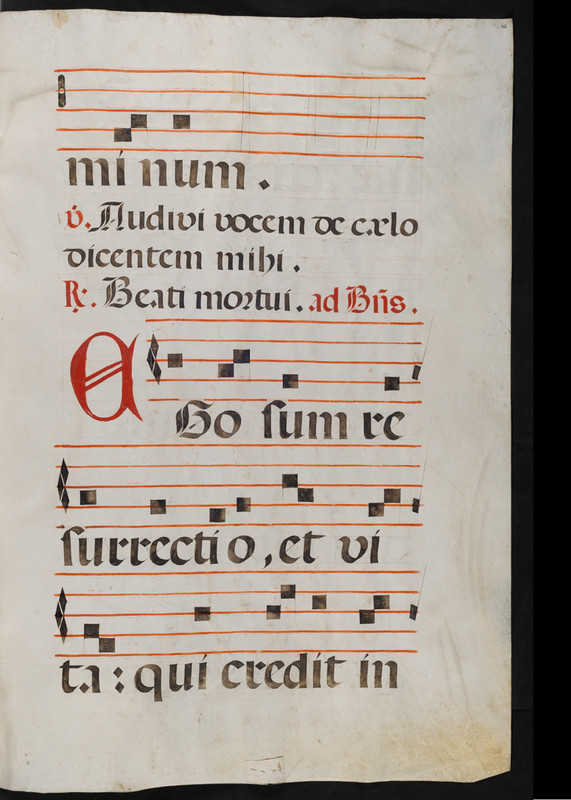 mi num.
℣. Audivi vocem de cælo
dicentem mihi.
℟. Beati mortui. ad Bñs.
EGo sum re
surrecti o, et vi
ta: qui credit in